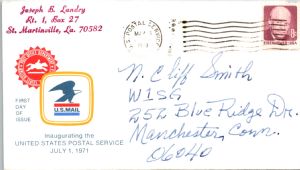 Joseph E. Landry
Rt. 1, Box 27
St. Martinville, La. 70582
U.S. POSTAL SERVICE
FIRST
DAY OF
ISSUE
U.S. MAIL
Inaugurating the
UNITED STATES POSTAL SERVICE
JULY 1, 1971
N. Cliff Smith
W1SG
252 Blue Ridge Dr.
Manchester, Conn.
06040